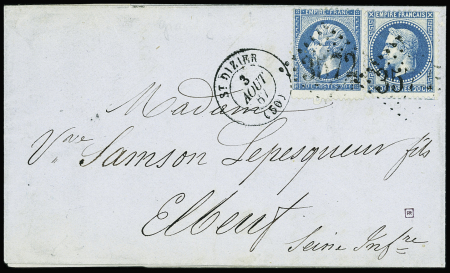 EMPIRE FRANC
EMPIRE FRANÇAIS
ST DIZIER
3
AOUT
67
(50)
Madame
Vve Samson Lepesqueur fils
Elbeuf
Seine Infre